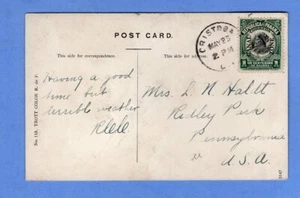 POST CARD.
This side for correspondence.
This side for address.
CRISTOBAL
MAY 25
2 PM
Having a good
time but
terrible weather
Mrs. L. N.
Ridley Park
Pennsylvania
U.S.A.